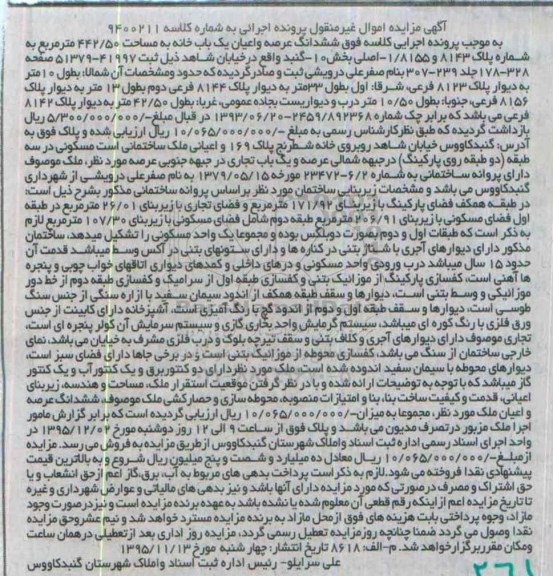 آگهی مزایده اموال غیرمنقول پرونده اجرائی به شماره کلاسه ۹۴۰۰۲۱۱
به موجب پرونده اجرایی کلاسه فوق ششدانگ عرصه واعیان یک باب خانه به مساحت ۴۴۲/۵۰ مترمربع به
شماره پلاک ۸۱۴۳ و ۱/۸۱۵۵-اصلی بخش۱۰-گنبد واقع درخیابان شاهد ذیل ثبت ۴۱۹۹۷-۵۱۳۷۹ صفحه
۳۲۸-۱۷۸جلد ۲۳۹-۳۰۷ بنام صفرعلی درویشی ثبت و صادر گردیده که حدود ومشخصات آن شمالا: بطول ۱۰متر
به دیوار پلاک ۸۱۲۳ فرعی، شرقا: اول بطول ۳۳متر به دیوار پلاک ۸۱۴۴ فرعی دوم بطول ۱۳ متر به دیوار پلاک
۸۱۵۶ فرعی، جنوبا: بطول ۱۰/۵۰ متر درب و دیواریست بجاده عمومی، غربا: بطول ۴۲/۵۰ متر به دیوار پلاک ۸۱۴۲
فرعی می باشد که برابر چک شماره ۲۴۵۹/۸۹۲۳۶۸-۱۳۹۳/۰۶/۲۰ در قبال مبلغ-/۵/۳۰۰/۰۰۰/۰۰۰ ریال
بازداشت گردیده که طبق نظرکارشناس رسمی به مبلغ -/۱۰/۰۶۵/۰۰۰/۰۰۰ ریال ارزیابی شده و پلاک فوق به
آدرس: گنبدکاووس خیابان شاهد روبروی خانه شطرنج پلاک ۱۶۹ و اعیانی ملک ساختمانی است مسکونی در سه
طبقه (دو طبقه روی پارکینگ) درجبهه شمالی عرصه و یک باب تجاری در جبهه جنوبی عرصه مورد نظر، ملک موصوف
دارای پروانه ساختمانی به شماره ۶/۲-۲۳۴۷۲ مورخه ۱۳۷۹/۰۵/۱۵ به نام صفرعلی درویشی از شهرداری
گنبدکاووس می باشد و مشخصات زیربنایی ساختمان مورد نظر بر اساس پروانه ساختمانی مذکور بشرح ذیل است:
در طبقه همکف فضای پارکینگ با زیربنای ۱۷۱/۹۲ مترمربع و فضای تجاری با زیربنای ۲۶/۰۱ مترمربع در طبقه
اول فضای مسکونی با زیربنای ۲۰۶/۹۱ مترمربع طبقه دوم شامل فضای مسکونی با زیربنای ۱۰۷/۳۰ مترمربع لازم
به ذکر است که طبقات اول و دوم بصورت دوبلکس بوده و مجموعا یک واحد مسکونی را تشکیل میدهد، ساختمان
مذکور دارای دیوارهای آجری با شناژ بتنی در کناره ها و دارای ستونهای بتنی در آکس وسط میباشد قدمت آن
حدود ۱۵ سال میباشد درب ورودی واحد مسکونی و درهای داخلی و کمدهای دیواری اتاقهای خواب چوبی و پنجره
ها آهنی است، کفسازی پارکینگ از موزائیک بتنی و کفسازی طبقه اول از سرامیک و کفسازی طبقه دوم از خط دور
موزائیکی و وسط بتنی است، دیوارها و سقف طبقه همکف از اندود سیمان سفید با ازاره سنگی از جنس سنگ
طوسی است، دیوارها و سقف طبقه اول و دوم از اندود گچ با رنگ آمیزی است، آشپزخانه دارای کابینت از جنس
ورق فلزی با رنگ کوره ای میباشد، سیستم گرمایش واحد بخاری گازی و سیستم سرمایش آن کولر پنجره ای است،
تجاری موصوف دارای دیوارهای آجری و کلاف بتنی و سقف تیرچه بلوک و درب فلزی مشرف به خیابان می باشد، نمای
خارجی ساختمان از سنگ می باشد، کفسازی محوطه از موزائیک بتنی است و در برخی جاها دارای فضای سبز است،
دیوارهای محوطه با سیمان سفید اندوده شده است، ملک مورد نظردارای دو کنتوربرق و یک کنتور آب و یک کنتور
گاز میباشد که با توجه به توضیحات ارائه شده و با در نظر گرفتن موقعیت استقرار ملک، مساحت و هندسه، زیربنای
اعیانی، قدمت و کیفیت ساخت بنا، بنا و امتیازات منصوبه، محوطه سازی و حصارکشی ملک موصوف، ششدانگ عرصه
و اعیان ملک مورد نظر، مجموعا به میزان-/۱۰/۰۶۵/۰۰۰/۰۰۰ ریال ارزیابی گردیده است که برابر گزارش مامور
اجرا ملک مزبور درتصرف مدیون می باشد و پلاک فوق از ساعت ۹ الی ۱۲ روز دوشنبه مورخ ۱۳۹۵/۱۲/۰۲ در
واحد اجرای اسناد رسمی اداره ثبت اسناد واملاک شهرستان گنبدکاووس ازطریق مزایده به فروش می رسد. مزایده
ازمبلغ-/۱۰/۰۶۵/۰۰۰/۰۰۰ ریال معادل ده میلیارد و شصت و پنج میلیون ریال شروع و به بالاترین قیمت
پیشنهادی نقدا فروخته می شود.لازم به ذکراست پرداخت بدهی های مربوط به آب، برق،گاز اعم ازحق انشعاب و یا
حق اشتراک و مصرف درصورتی که مورد مزایده دارای آنها باشد و نیز بدهی های مالیاتی و عوارض شهرداری و غیره
تا تاریخ مزایده اعم از اینکه رقم قطعی آن معلوم شده یا نشده باشد به عهده برنده مزایده است و نیزدرصورت وجود
مازاد، وجوه پرداختی بابت هزینه های فوق ازمحل مازاد به برنده مزایده مسترد خواهد شد و نیم عشروحق مزایده
نقدا وصول می گردد ضمنا چنانچه روزمزایده تعطیل رسمی گردد، مزایده روز اداری بعد ازتعطیلی درهمان ساعت
ومکان مقرربرگزارخواهد شد. م-الف: ۸۶۱۸ تاریخ انتشار: چهار شنبه مورخ ۱۳۹۵/۱۱/۱۳
علی سرایلو- رئیس اداره ثبت اسناد واملاک شهرستان گنبدکاووس
۲۶۱